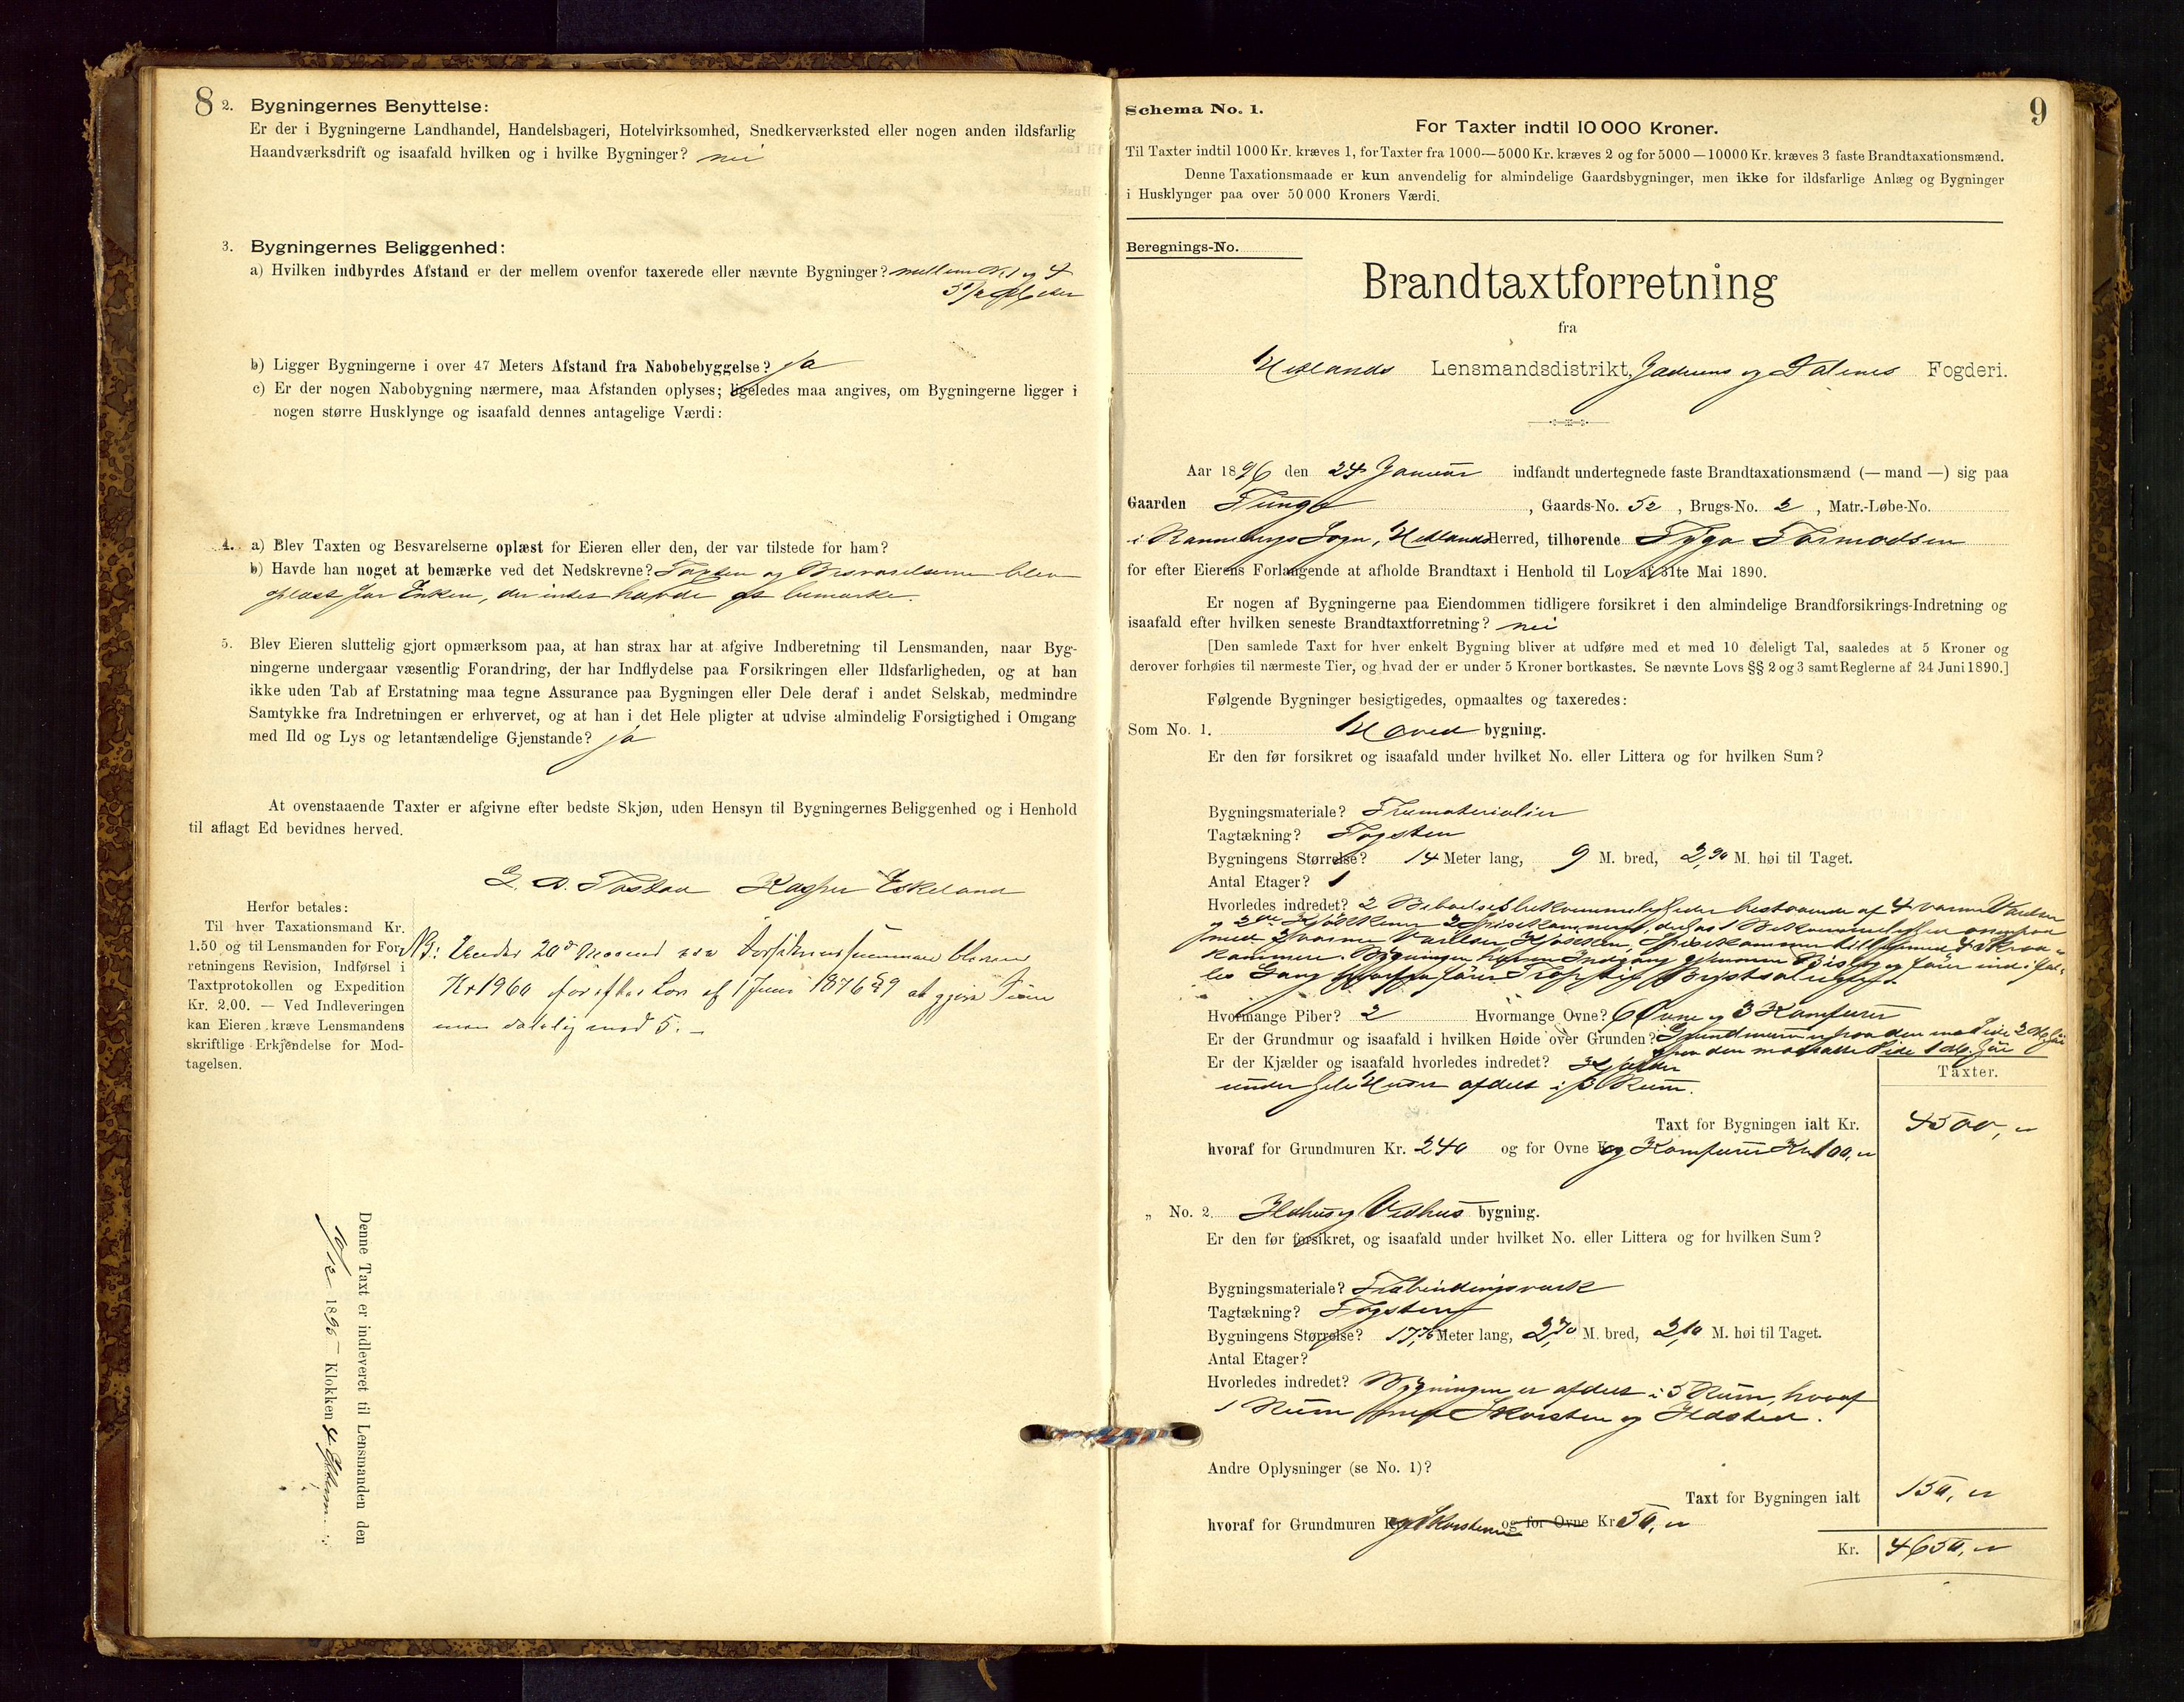 8
2. Bygningernes Benyttelse:
Er der i Bygningerne Landhandel, Handelsbageri, Hotelvirksomhed, Snedkerværksted eller nogen anden ildsfarlig
Haandværksdrift og isaafald hvilken og i hvilke Bygninger? nei
3. Bygningernes Beliggenhed:
a) Hvilken indbyrdes Afstand er der mellem ovenfor taxerede eller nævnte Bygninger? mellem No. 1 og 4
b) Ligger Bygningerne i over 47 Meters Afstand fra Nabobebyggelse? ja
c) Er der nogen Nabobygning nærmere, maa Afstanden oplyses; ligeledes maa angives, om Bygningerne ligger i
nogen større Husklynge og isaafald dennes antagelige Værdi:
4. a) Blev Taxten og Besvarelserne oplæst for Eieren eller den, der var tilstede for ham?
b) Havde han noget at bemærke ved det Nedskrevne? Taxten og Besvarelserne blev
oplæst for Enken, der intet havde at bemærke.
5. Blev Eieren sluttelig gjort opmærksom paa, at han strax har at afgive Indberetning til Lensmanden, naar Byg-
ningerne undergaar væsentlig Forandring, der har Indflydelse paa Forsikringen eller Ildsfarligheden, og at han
ikke uden Tab af Erstatning maa tegne Assurance paa Bygningen eller Dele deraf i andet Selskab, medmindre
Samtykke fra Indretningen er erhvervet, og at han i det Hele pligter at udvise almindelig Forsigtighed i Omgang
med Ild og Lys og letantændelige Gjenstande? ja
At ovenstaaende Taxter er afgivne efter bedste Skjøn, uden Hensyn til Bygningernes Beliggenhed og i Henhold
til aflagt Ed bevidnes herved.
Kasper Eskeland
Herfor betales:
Til hver Taxationsmand Kr.
1.50 og til Lensmanden for For-
retningens Revision, Indførsel i
Taxtprotokollen og Expedition
Kr. 2.00. — Ved Indleveringen
kan Eieren kræve Lensmandens
skriftlige Erkjendelse for Mod-
tagelsen.
NB: Under 20de
Kr 1960 for efter Lov af 1 Juni 1876 § 9 at
delelig med 5. –
Denne Taxt er indleveret til Lensmanden den
10/12 1895 Klokken 4 Efterm.
9
Schema No. 1.
For Taxter indtil 10 000 Kroner.
Til Taxter indtil 1000 Kr. kræves 1, for Taxter fra 1000—5000 Kr. kræves 2 og for 5000—10000 Kr. kræves 3 faste Brandtaxationsmænd.
Denne Taxationsmaade er kun anvendelig for almindelige Gaardsbygninger, men ikke for ildsfarlige Anlæg og Bygninger
i Husklynger paa over 50 000 Kroners Værdi.
Beregnings-No.
Brandtaxtforretning
fra
Hetlands Lensmandsdistrikt, Jæderens og Dalenes Fogderi.
Aar 1896 den 24 Januar indfandt undertegnede faste Brandtaxationsmænd (— mand —) sig paa
Gaarden Tunge, Gaards-No. 52, Brugs-No. 2, Matr.-Løbe-No.
i Randebergs Sogn, Hetlands Herred, tilhørende Tormodsen
for efter Eierens Forlangende at afholde Brandtaxt i Henhold til Lov af 31te Mai 1890.
Er nogen af Bygningerne paa Eiendommen tidligere forsikret i den almindelige Brandforsikrings-Indretning og
isaafald efter hvilken seneste Brandtaxtforretning? nei
[Den samlede Taxt for hver enkelt Bygning bliver at udføre med et med 10 deleligt Tal, saaledes at 5 Kroner og
derover forhøies til nærmeste Tier, og hvad der er under 5 Kroner bortkastes. Se nævnte Lovs §§ 2 og 3 samt Reglerne af 24 Juni 1890.]
Følgende Bygninger besigtigedes, opmaaltes og taxeredes:
Som No. 1. Hoved bygning.
Er den før forsikret og isaafald under hvilket No. eller Littera og for hvilken Sum?
Bygningsmateriale? Træmaterialier
Tagtækning? Tagsten
Bygningens Størrelse? 14 Meter lang, 9 M. bred, 2,90 M. høi til Taget.
Antal Etager? 1
Hvorledes indredet? 2 Beboelsesbekvemmeligheder bestaaende af 4 varme Værelser
Hvormange Piber? 2 Hvormange Ovne? 6 Ovne og 3 Komfurer
Er der Grundmur og isaafald i hvilken Høide over Grunden? Grundmuren
Er der Kjælder og isaafald hvorledes indredet? Kjælder
under hele Huset afdelt i 3 Rum.
Taxter.
Taxt for Bygningen ialt Kr. 4500,
hvoraf for Grundmuren Kr. 240 og for Ovne og Komfurer Kr 100,
„ No. 2. Ildhus og Vedhus bygning.
Er den før forsikret, og isaafald under hvilket No. eller Littera og for hvilken Sum?
Bygningsmateriale? Træbindingsværk
Tagtækning? Tagsten
Bygningens Størrelse? 17,76 Meter lang, 2,70 M. bred, 2,10 M. høi til Taget.
Antal Etager?
Hvorledes indredet? Bygningen er afdelt i 3 Rum, hvoraf
1 Rum med Skorsten og Ildsted.
Andre Oplysninger (se No. 1)?
Taxt for Bygningen ialt 150,
hvoraf for Grundmuren og Skorstenen og for Ovne Kr 50,
Kr. 4650,